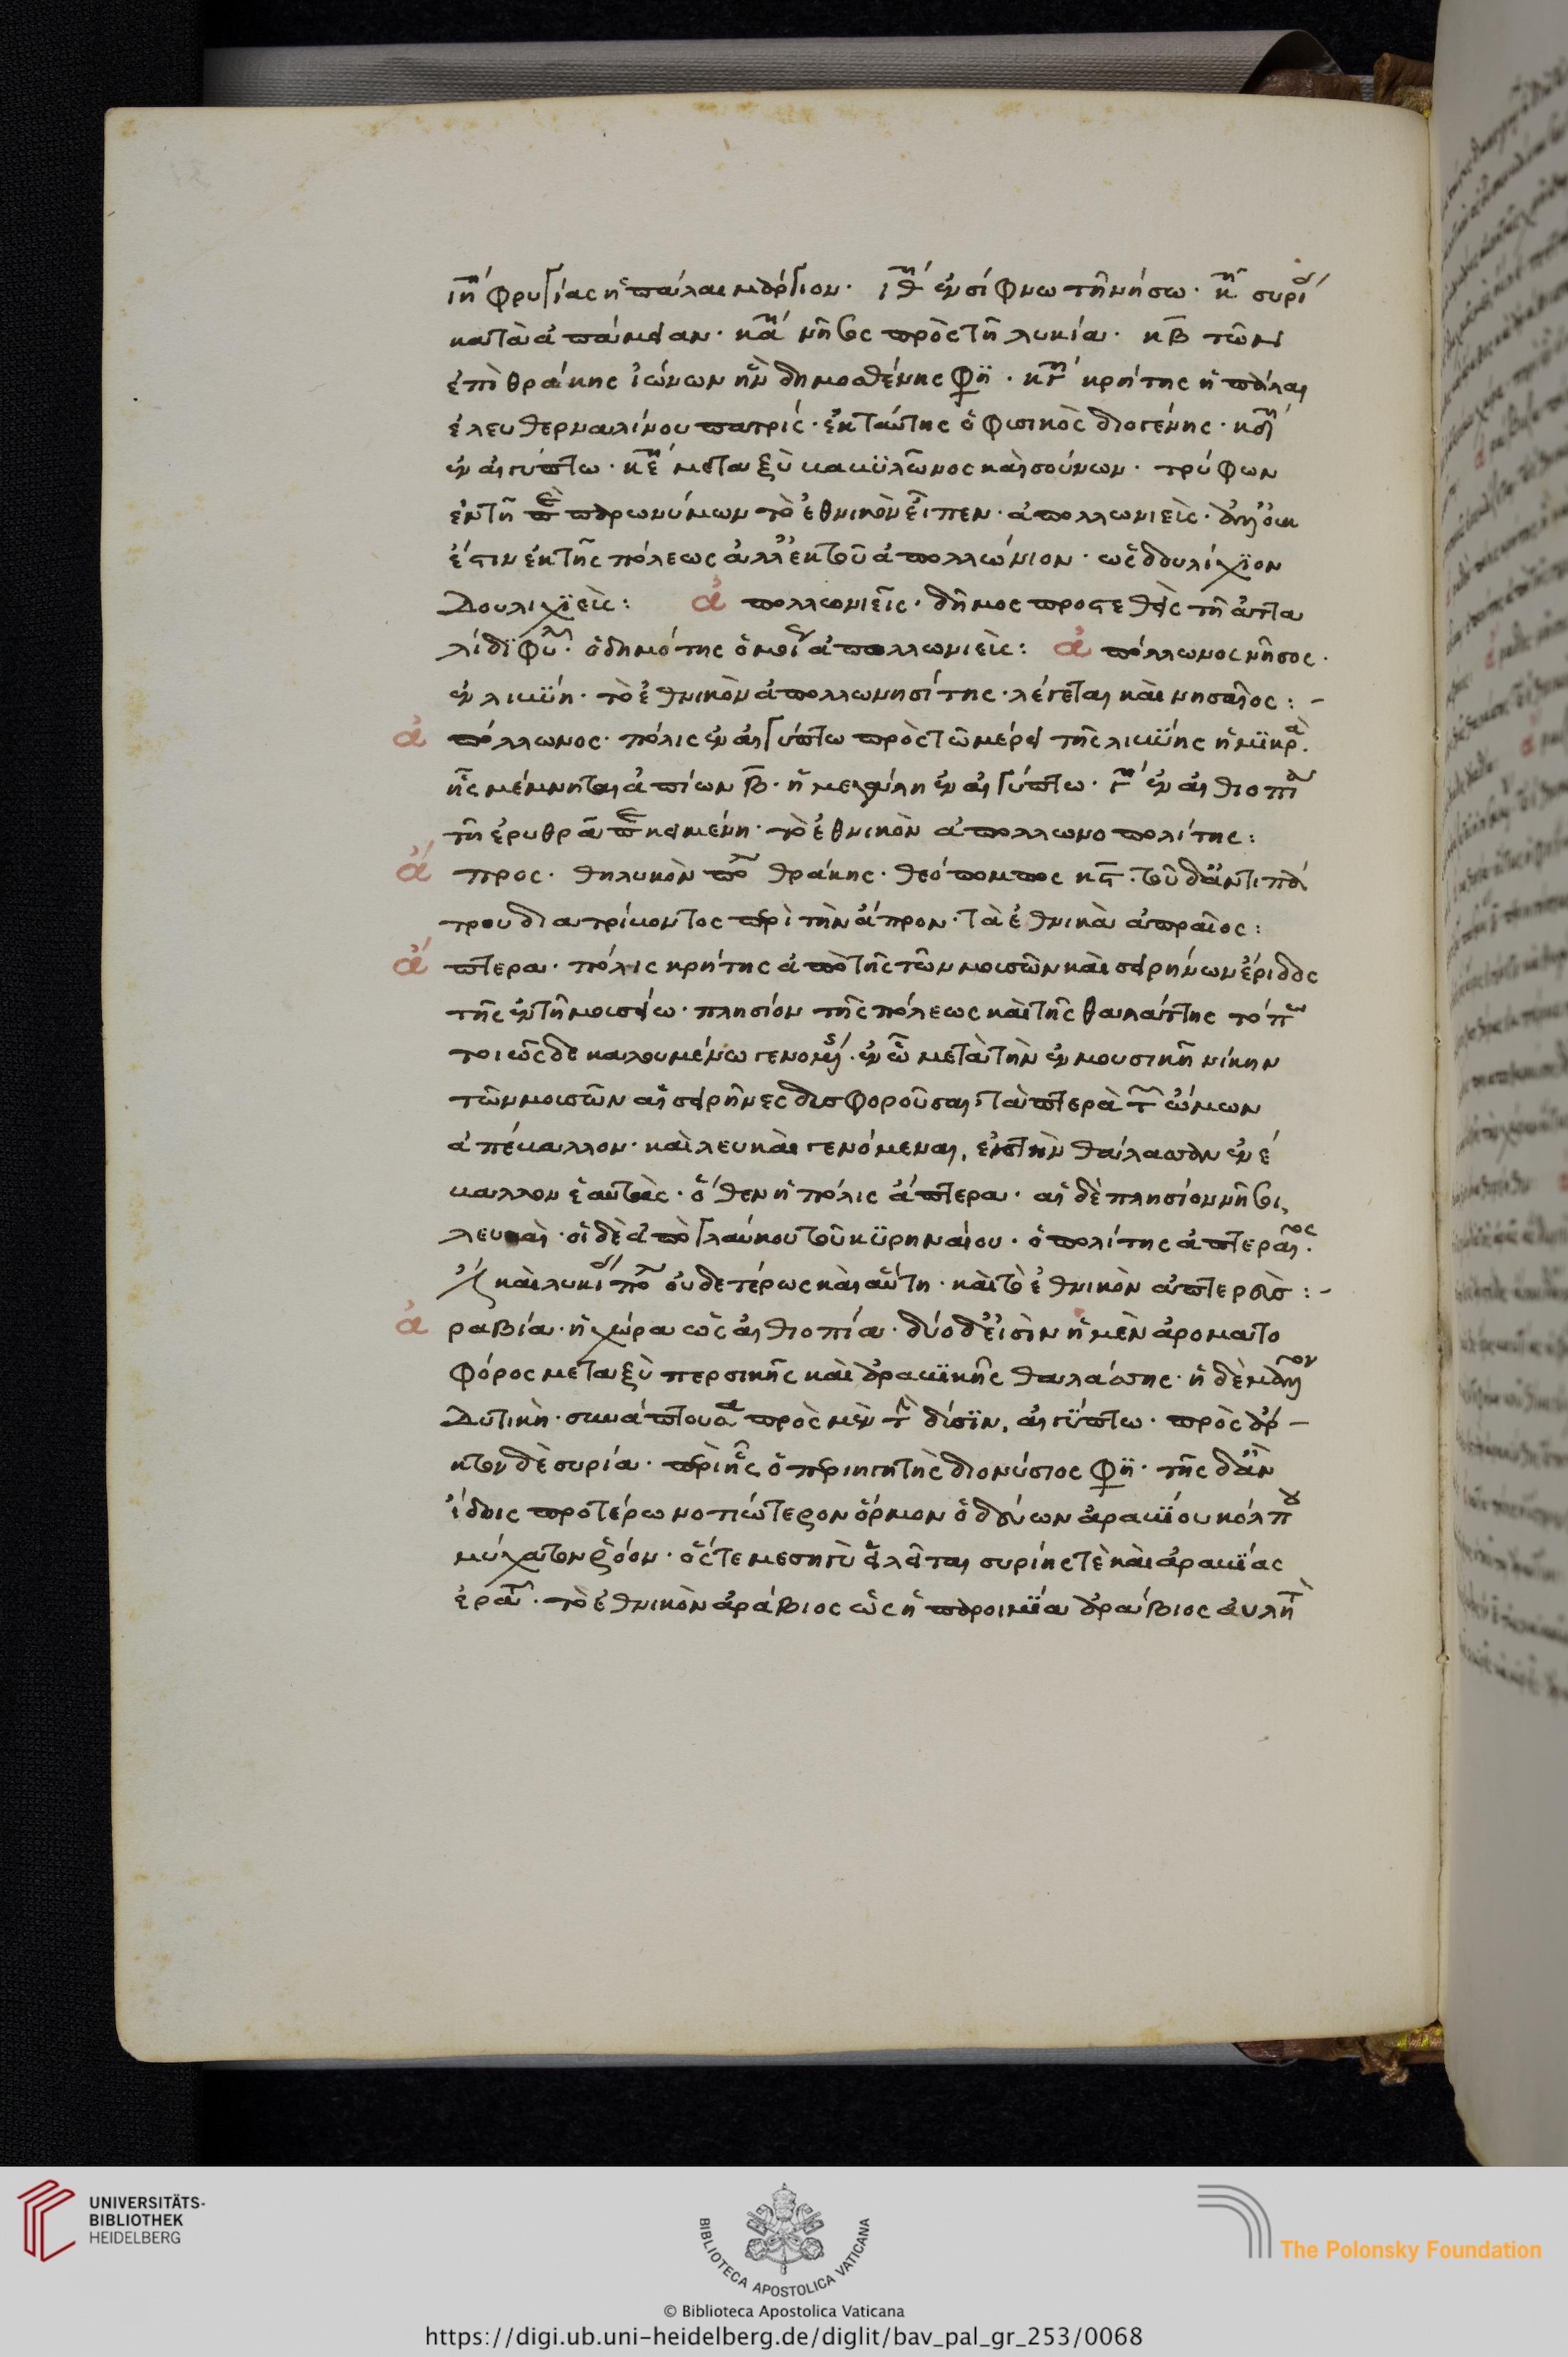 ιηʹ φρυγίας ἡ πάλαι μόργιον· ιθʹ ἐν σίφνω τῆ νήσω· κʹ συρί
κατὰ ἀπάμειαν· καʹ νῆσος πρὸς τῆ λυκία· κβ τῶν
ἐπὶ θράκης ἰώνων ἣν δημοσθένης φη · κγʹ κρήτης ἡ πάλαι
ἐλευθερναλίνου πατρίς· ἐκ ταύτης ὁ φυσικὸς διογένης· κδʹ
ἐν αἰγύπτω· κεʹ μεταξὺ βαβυλῶνος καὶ σούσων· τρύφων
ἐν τῆ π παρωνύμων τὸ ἐθνικὸν εἶπεν· ἀπολλωνιεὶς·
ἔστιν ἐκ τῆς πόλεως ἀλλ' ἐκ τοῦ ἀπολλώνιον· ὡς δουλίχιον
Δουλιχιεὶς: ἀ πολλωνιεῖς· δῆμος προστεθεὶς τῆ ἀττα
λίδι φυλ· ὁ δημότης ὁμοί ἀπολλωνιεὶς: ἀ πόλλωνος νῆσος·
ἐν λιβύη· τὸ ἐθνικὸν ἀπολλωνησίτης· λέγεται καὶ νησαῖος:-
ἀ πόλλωνος· πόλις ἐν αἰγύπτω πρὸς τῶ μέρει τῆς λιβύης ἡ μικρὰ.
ἧς μέμνηται ἀπίων β· ἡ μεγάλη ἐν αἰγύπτω· γʹ ἐν αἰθιοπί
τῆ ἐρυθρᾶ π κειμένη· τὸ ἐθνικὸν ἀπολλωνοπολίτης:
ἄ προς· θηλυκὸν πο θράκης· θεόπομπος κϛ· τοῦ δ' ἀντιπά
τρου διατρίβοντος περὶ τὴν ἄπρον· τὰ ἐθνικὰ ἀπραῖος:
ἄ πτερα· πόλις κρήτης ἀπὸ τῆς τῶν μουσῶν καὶ σειρήνων ἔριδος
τῆς ἐν τῆ μουσείω· πλησίον τῆς πόλεως καὶ τῆς θαλάττης τόπ
τοιῶσδε καλουμένω γενομ· ἐν ὧ μετὰ τὴν ἐν μουσικῆ νίκην
τῶν μουσῶν αἱ σειρῆνες δυσφοροῦσαι, τὰ πτερὰ τ ὤμων
ἀπέβαλλον· καὶ λευκαὶ γενόμεναι, εἰς τὴν θάλασσαν ἐνέ
βαλλον ἑαυτάς· ὅθεν ἡ πόλις ἄπτερα· αἱ δὲ πλησίον νῆσοι,
λευκαὶ· οἱ δὲ ἀπὸ γλαύκου τοῦ κυρηναίου· ὁ πολίτης ἀπτεραῖος·
ἔς καὶ λυκί πο οὐδετέρως καὶ αὕτη· καὶ τὸ ἐθνικὸν :-
ἀ ραβία· ἡ χώρα ὡς αἰθιοπία· δύο δ' εἰσὶν ἡ μὲν ἀροματο
φόρος μεταξὺ περσικῆς καὶ ἀραβικῆς θαλάσσης· ἡ δὲ μᾶλλον
Δυτικὴ· συνάπτουσα πρὸς μὲν τ δύσιν, αἰγύπτω· πρὸς ἄρ-
κτον δὲ συρία· περὶ ἧς ὁ περιηγητὴς διονύσιος φη· τῆς δ' ἂν
ἴδοις προτέρω νοτιώτερον ὅρμον ὁδεύων ἀραβίου κόλπου
μύχατον ῥόον· ὅς τε μεσηγὺ εἱλεῖται συρίης τὲ καὶ ἀραβίας
ἐρα· τὸ ἐθνικὸν ἀράβιος ὡς ἡ παροιμία ἀράβιος αὐλητ
UNIVERSITÄTS-
BIBLIOTHEK
HEIDELBERG
BIBLIOTECA APOSTOLICA VATICANA
The Polonsky Foundation
© Biblioteca Apostolica Vaticana
https://digi.ub.uni-heidelberg.de/diglit/bav_pal_gr_253/0068